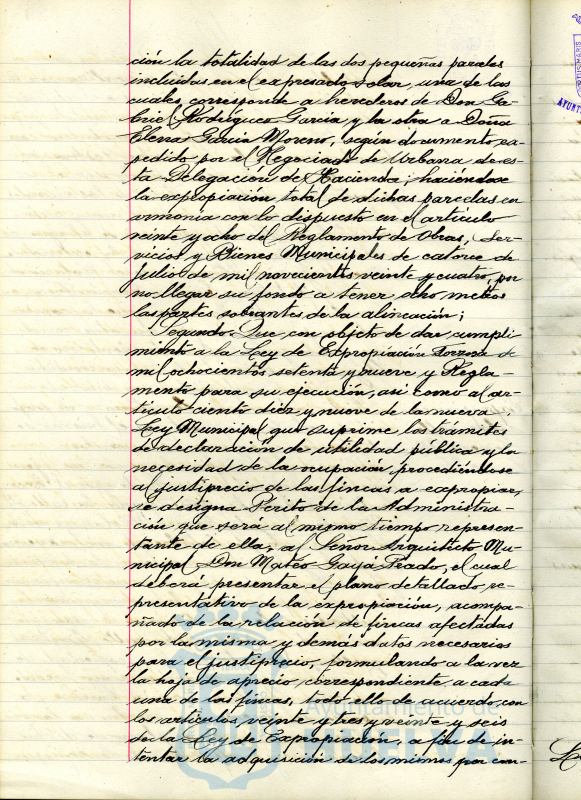 ción la totalidad de las dos pequeñas parcelas
incluidas en el expresado solar, una de las
cuales, corresponde a herederos de Don Ga-
briel Rodriguez Garcia y la otra a Doña
Elena Garcia Moreno, según documento ex-
pedido por el Negociado de Urbana de es-
ta Delegación de Hacienda; haciéndose
la expropiación total de dichas parcelas en
armonía con lo dispuesto en el artículo
veinte y ocho del Reglamento de Obras, Ser-
vicios y Bienes Municipales de catorce de
Julio de mil novecientos veinte y cuatro, por
no llegar su fondo a tener ocho metros
las partes sobrantes de la alineación;
Segundo. Que con objeto de dar cumpli-
miento a la Ley de Expropiación Forzosa de
mil ochocientos setenta y nueve y Regla-
mento para su ejecución, así como al ar-
tículo ciento diez y nueve de la nueva
Ley Municipal que suprime los trámites
de declaración de utilidad pública y la
necesidad de la ocupación, procediéndose
al justiprecio de las fincas a expropiar,
se designa Perito de la Administra-
ción que será al mismo tiempo represen-
tante de ella, al Señor Arquitecto Mu-
nicipal Don Mateo Gayá Prado, el cual
deberá presentar el plano detallado re-
presentativo de la expropiación, acompa-
ñado de la relación de fincas afectadas
por la misma y demás datos necesarios
para el justiprecio, formulando a la vez
la hoja de aprecio correspondiente a cada
una de las fincas, todo ello de acuerdo con
los artículos veinte y tres y veinte y seis
de la Ley de Expropiación, a fin de in-
tentar la adquisición de los mismos por con-
Ayuntamiento de
HUELVA
AYUNT